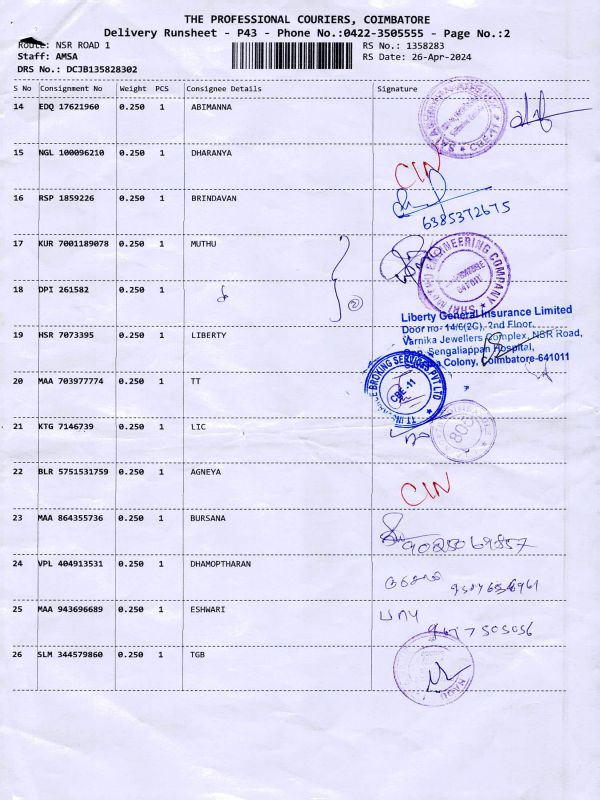 THE PROFESSIONAL COURIERS, COIMBATORE
Delivery Runsheet - P43 - Phone No.:0422-3505555 - Page No.:2
Route: NSR ROAD 1
RS No.: 1358283
Staff: AMSA
RS Date: 26-Apr-2024
DRS No.: DCJB135828302
S No Consignment No Weight PCS Consignee Details Signature
14 EDQ 17621960 0.250 1 ABIMANNA
15 NGL 100096210 0.250 1 DHARANYA
CIN
16 RSP 1859226 0.250 1 BRINDAVAN
6385372675
17 KUR 7001189078 0.250 1 MUTHU
ENGINEERING COMPANY
18 DPI 261582 0.250 1
2
Liberty General Insurance Limited
Door no- 14/6(2C), 2nd Floor,
Varnika Jewellers Complex, NSR Road,
Opp. Sengaliappan Hospital,
Colony, Coimbatore-641011
19 HSR 7073395 0.250 1 LIBERTY
BROKING SERVICES PVT LTD
CBE-11
20 MAA 703977774 0.250 1 TT
21 KTG 7146739 0.250 1 LIC
22 BLR 5751531759 0.250 1 AGNEYA
CIN
23 MAA 864355736 0.250 1 BURSANA
9025069857
24 VPL 404913531 0.250 1 DHAMOPTHARAN
25 MAA 943696689 0.250 1 ESHWARI
26 SLM 344579860 0.250 1 TGB